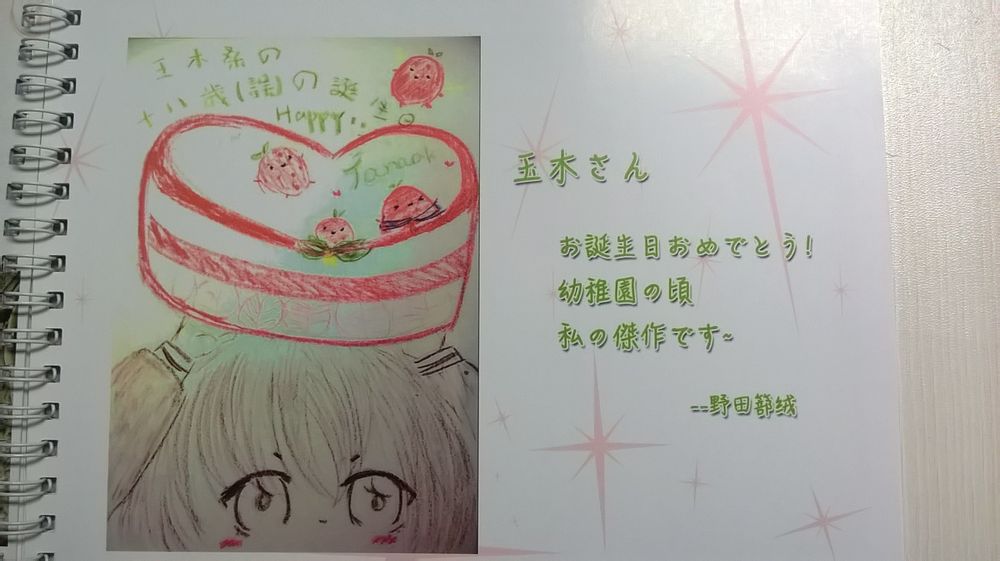 玉木系の
十八歳(誤)の誕生
Happy..
Tamaok
玉木さん
お誕生日おめでとう!
幼稚園の頃
私の傑作です~
--野田箒絨